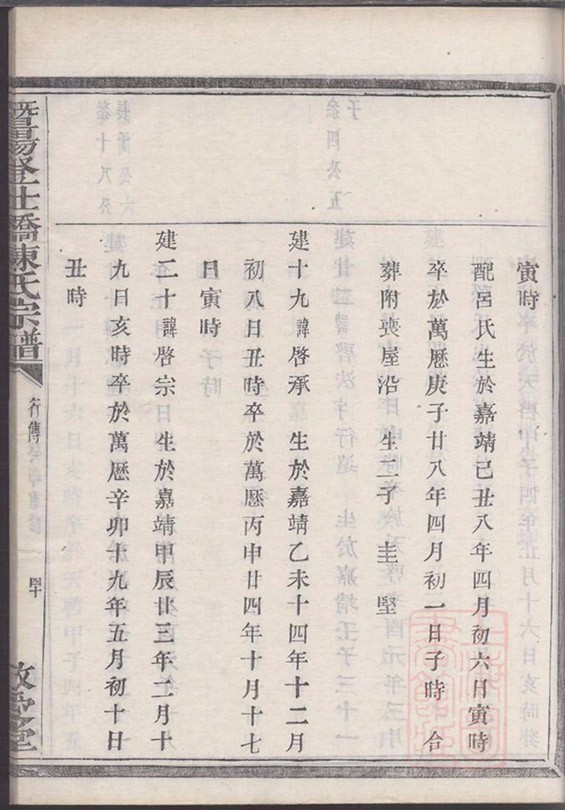 寅時
配呂氏生於嘉靖己丑八年四月初六日寅時
卒於萬曆庚子廿八年四月初一日子時 合
葬附喪屋沿 生二子 圭 堅
建十九諱啓承 生於嘉靖乙未十四年十二月
初八日丑時卒於萬曆丙申廿四年十月十七
日寅時
建二十諱啓宗 生於嘉靖甲辰廿三年二月十
九日亥時卒於萬曆辛卯十九年五月初十日
丑時
暨陽登仕橋陳氏宗譜
行傳
敬愛堂